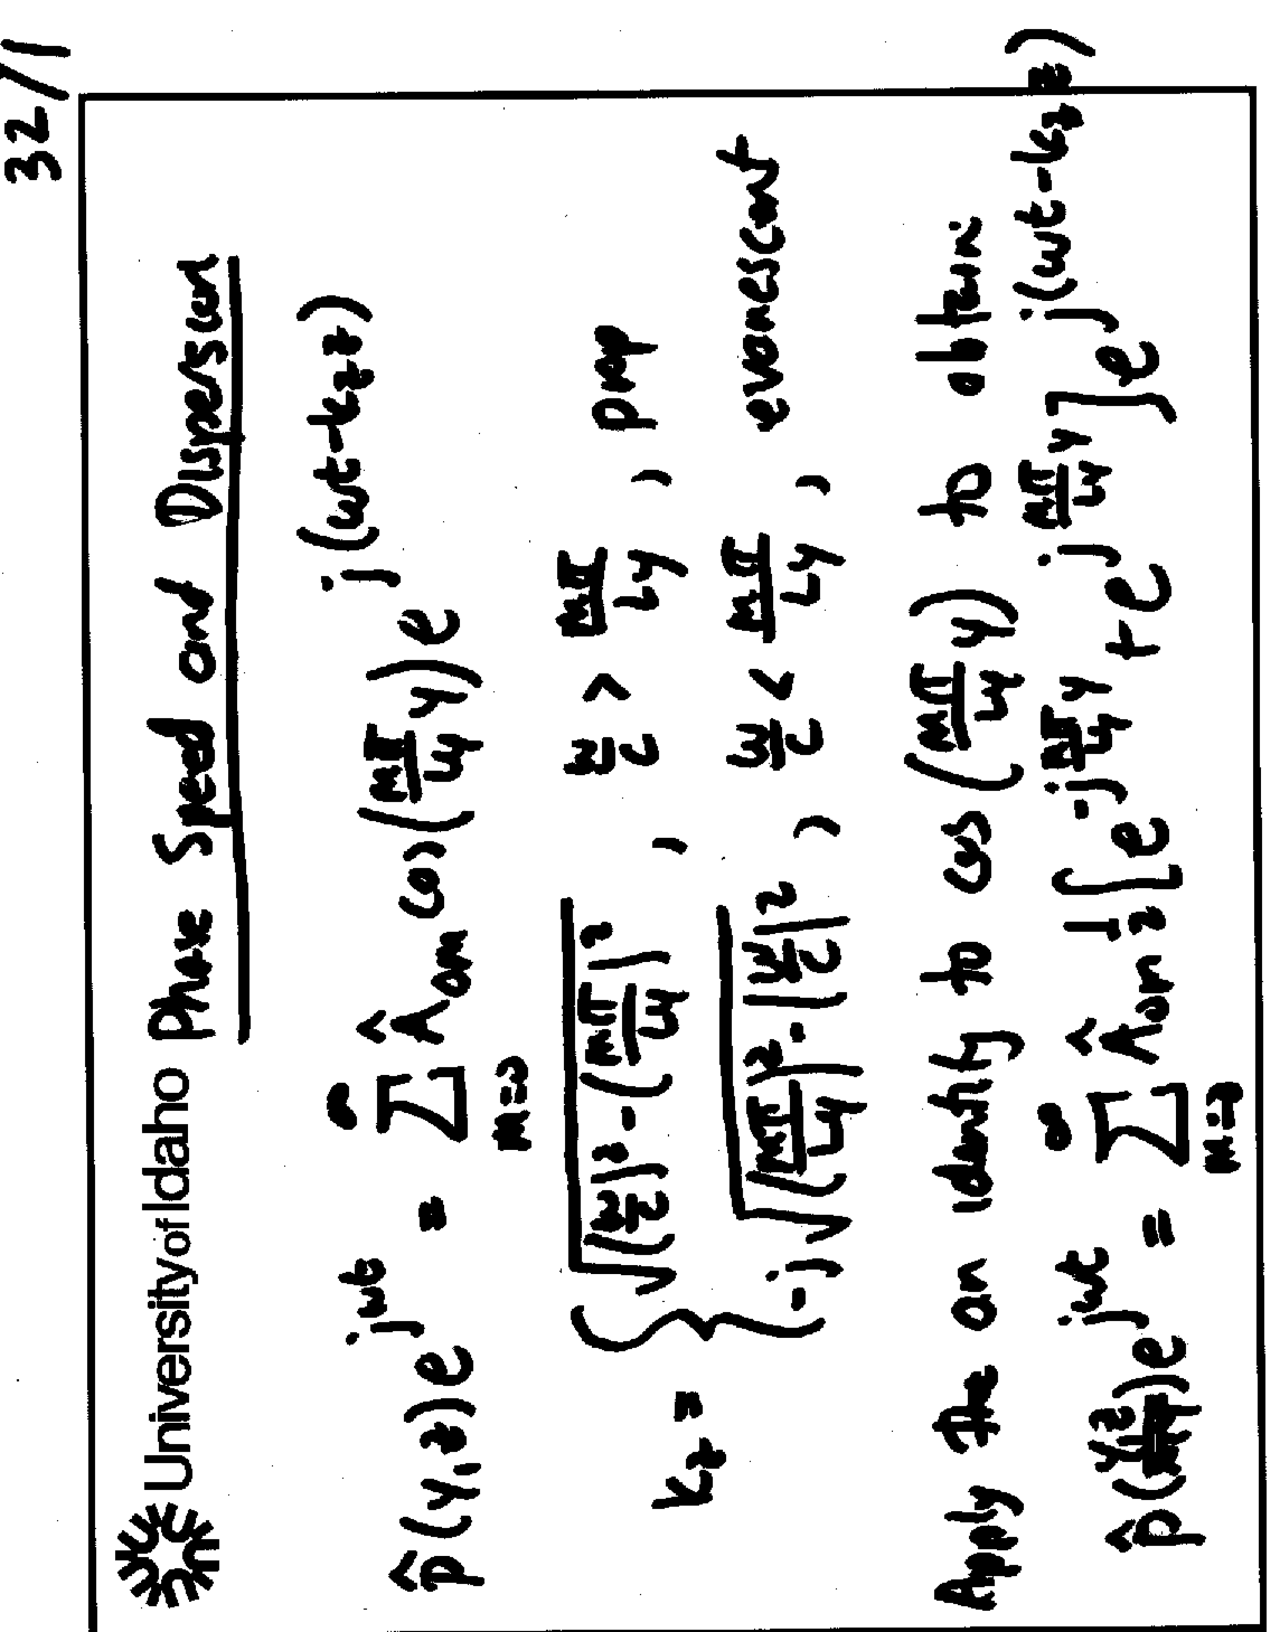 32/1
University of Idaho Phase Speed and Dispersion
p̂(y,z)e^{jωt} = ∑_{m=0}^{∞} Â_{om} cos(mπ/Ly y) e^{j(ωt-k_z z)}
k_z = { √((ω/c)² - (mπ/Ly)²) , ω/c > mπ/Ly , prop
-j√((mπ/Ly)² - (ω/c)²) , ω/c < mπ/Ly , evanescent
Apply the an identity to cos(mπ/Ly y) to obtain
p̂(y,z)e^{jωt} = ∑_{m=0}^{∞} Â_{om} 1/2 [e^{-j mπ/Ly y} + e^{j mπ/Ly y}] e^{j(ωt-k_z z)}